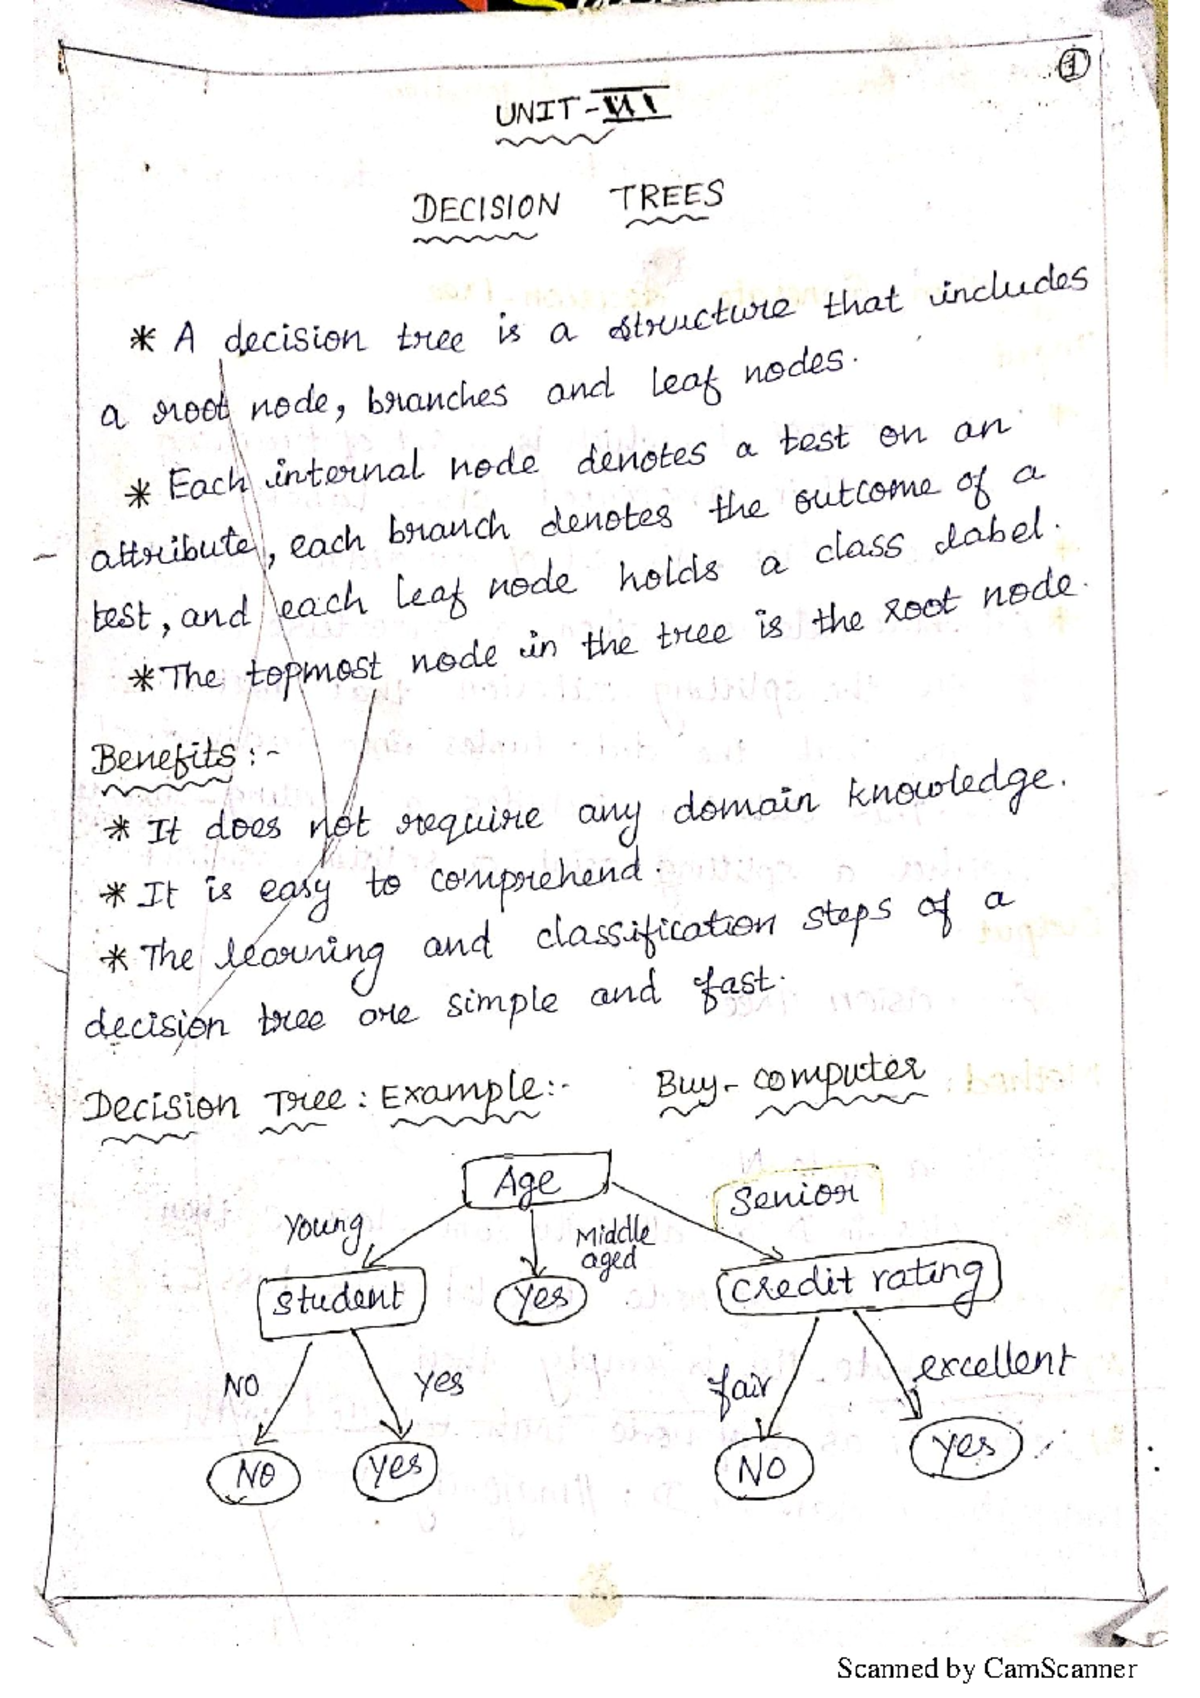 1
UNIT -
DECISION TREES
* A decision tree is a structure that includes
a root node, branches and leaf nodes.
* Each internal node denotes a test on an
attribute, each branch denotes the outcome of a
test, and each leaf node holds a class label.
* The topmost node in the tree is the root node.
Benefits :-
* It does not require any domain knowledge.
* It is easy to comprehend.
* The learning and classification steps of a
decision tree are simple and fast.
Decision Tree : Example:- Buy-computer
Age
Young
Middle
aged
Senior
student
Yes
credit rating
NO
yes
fair
excellent
NO
yes
NO
yes
Scanned by CamScanner